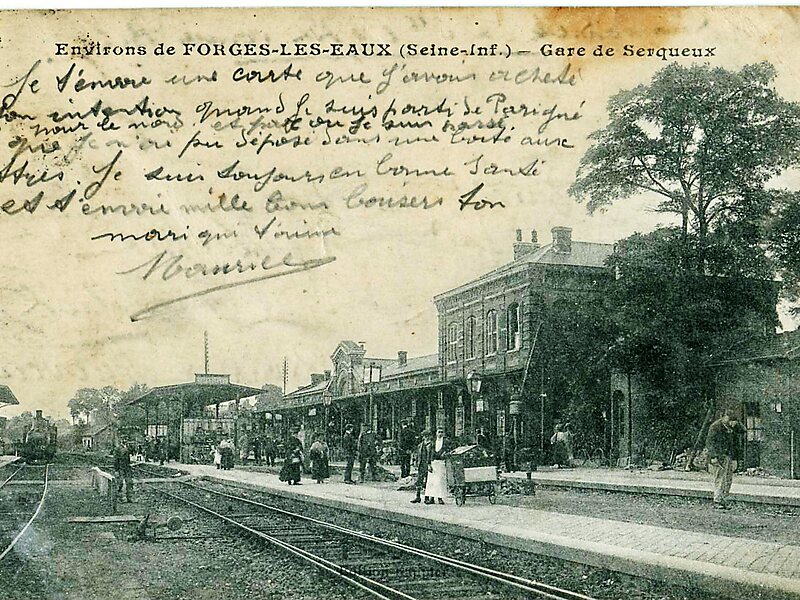 Environs de FORGES-LES-EAUX (Seine-Inf.) — Gare de Serqueux
Je t'envoie une carte que j'avais acheté
ton intention quand je suis parti de Parigné
pour le nord et pas ou je suis passé
que je n'ai pu déposé dans une boite aux
ttres. Je suis toujours en bonne santé
et t'envoie mille bons baisers ton
mari qui t'aime
Maurice